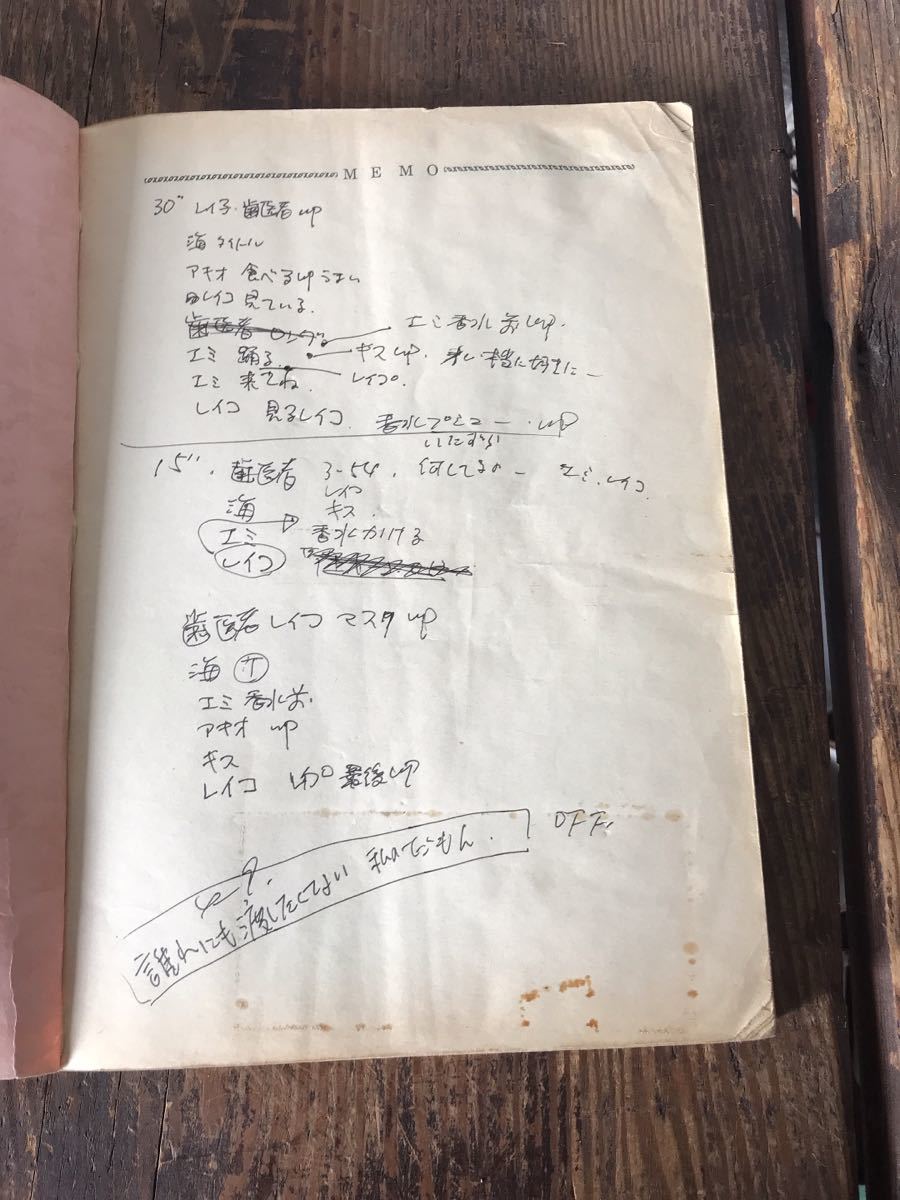 MEMO
30" レイ子・歯医者 up
海 タイトル
アキオ 食べる up うまい
レイコ 見ている。
歯医者 ロング エミ 香水 前 up.
エミ 踊る キス up.
エミ 来てね。 レイコ。
レイコ 見るレイコ. 香水 up
いたずら
15". 歯医者 3-54. 何してるの— エミ.レイコ.
レイコ
海 キス.
エミ 香水かける
レイコ
歯医者 レイコ マスタ up
海 サ
エミ 香水 前.
アキオ up
キス
レイコ 最後 up
OFF.
誰れにも渡したくない 私のだもん.